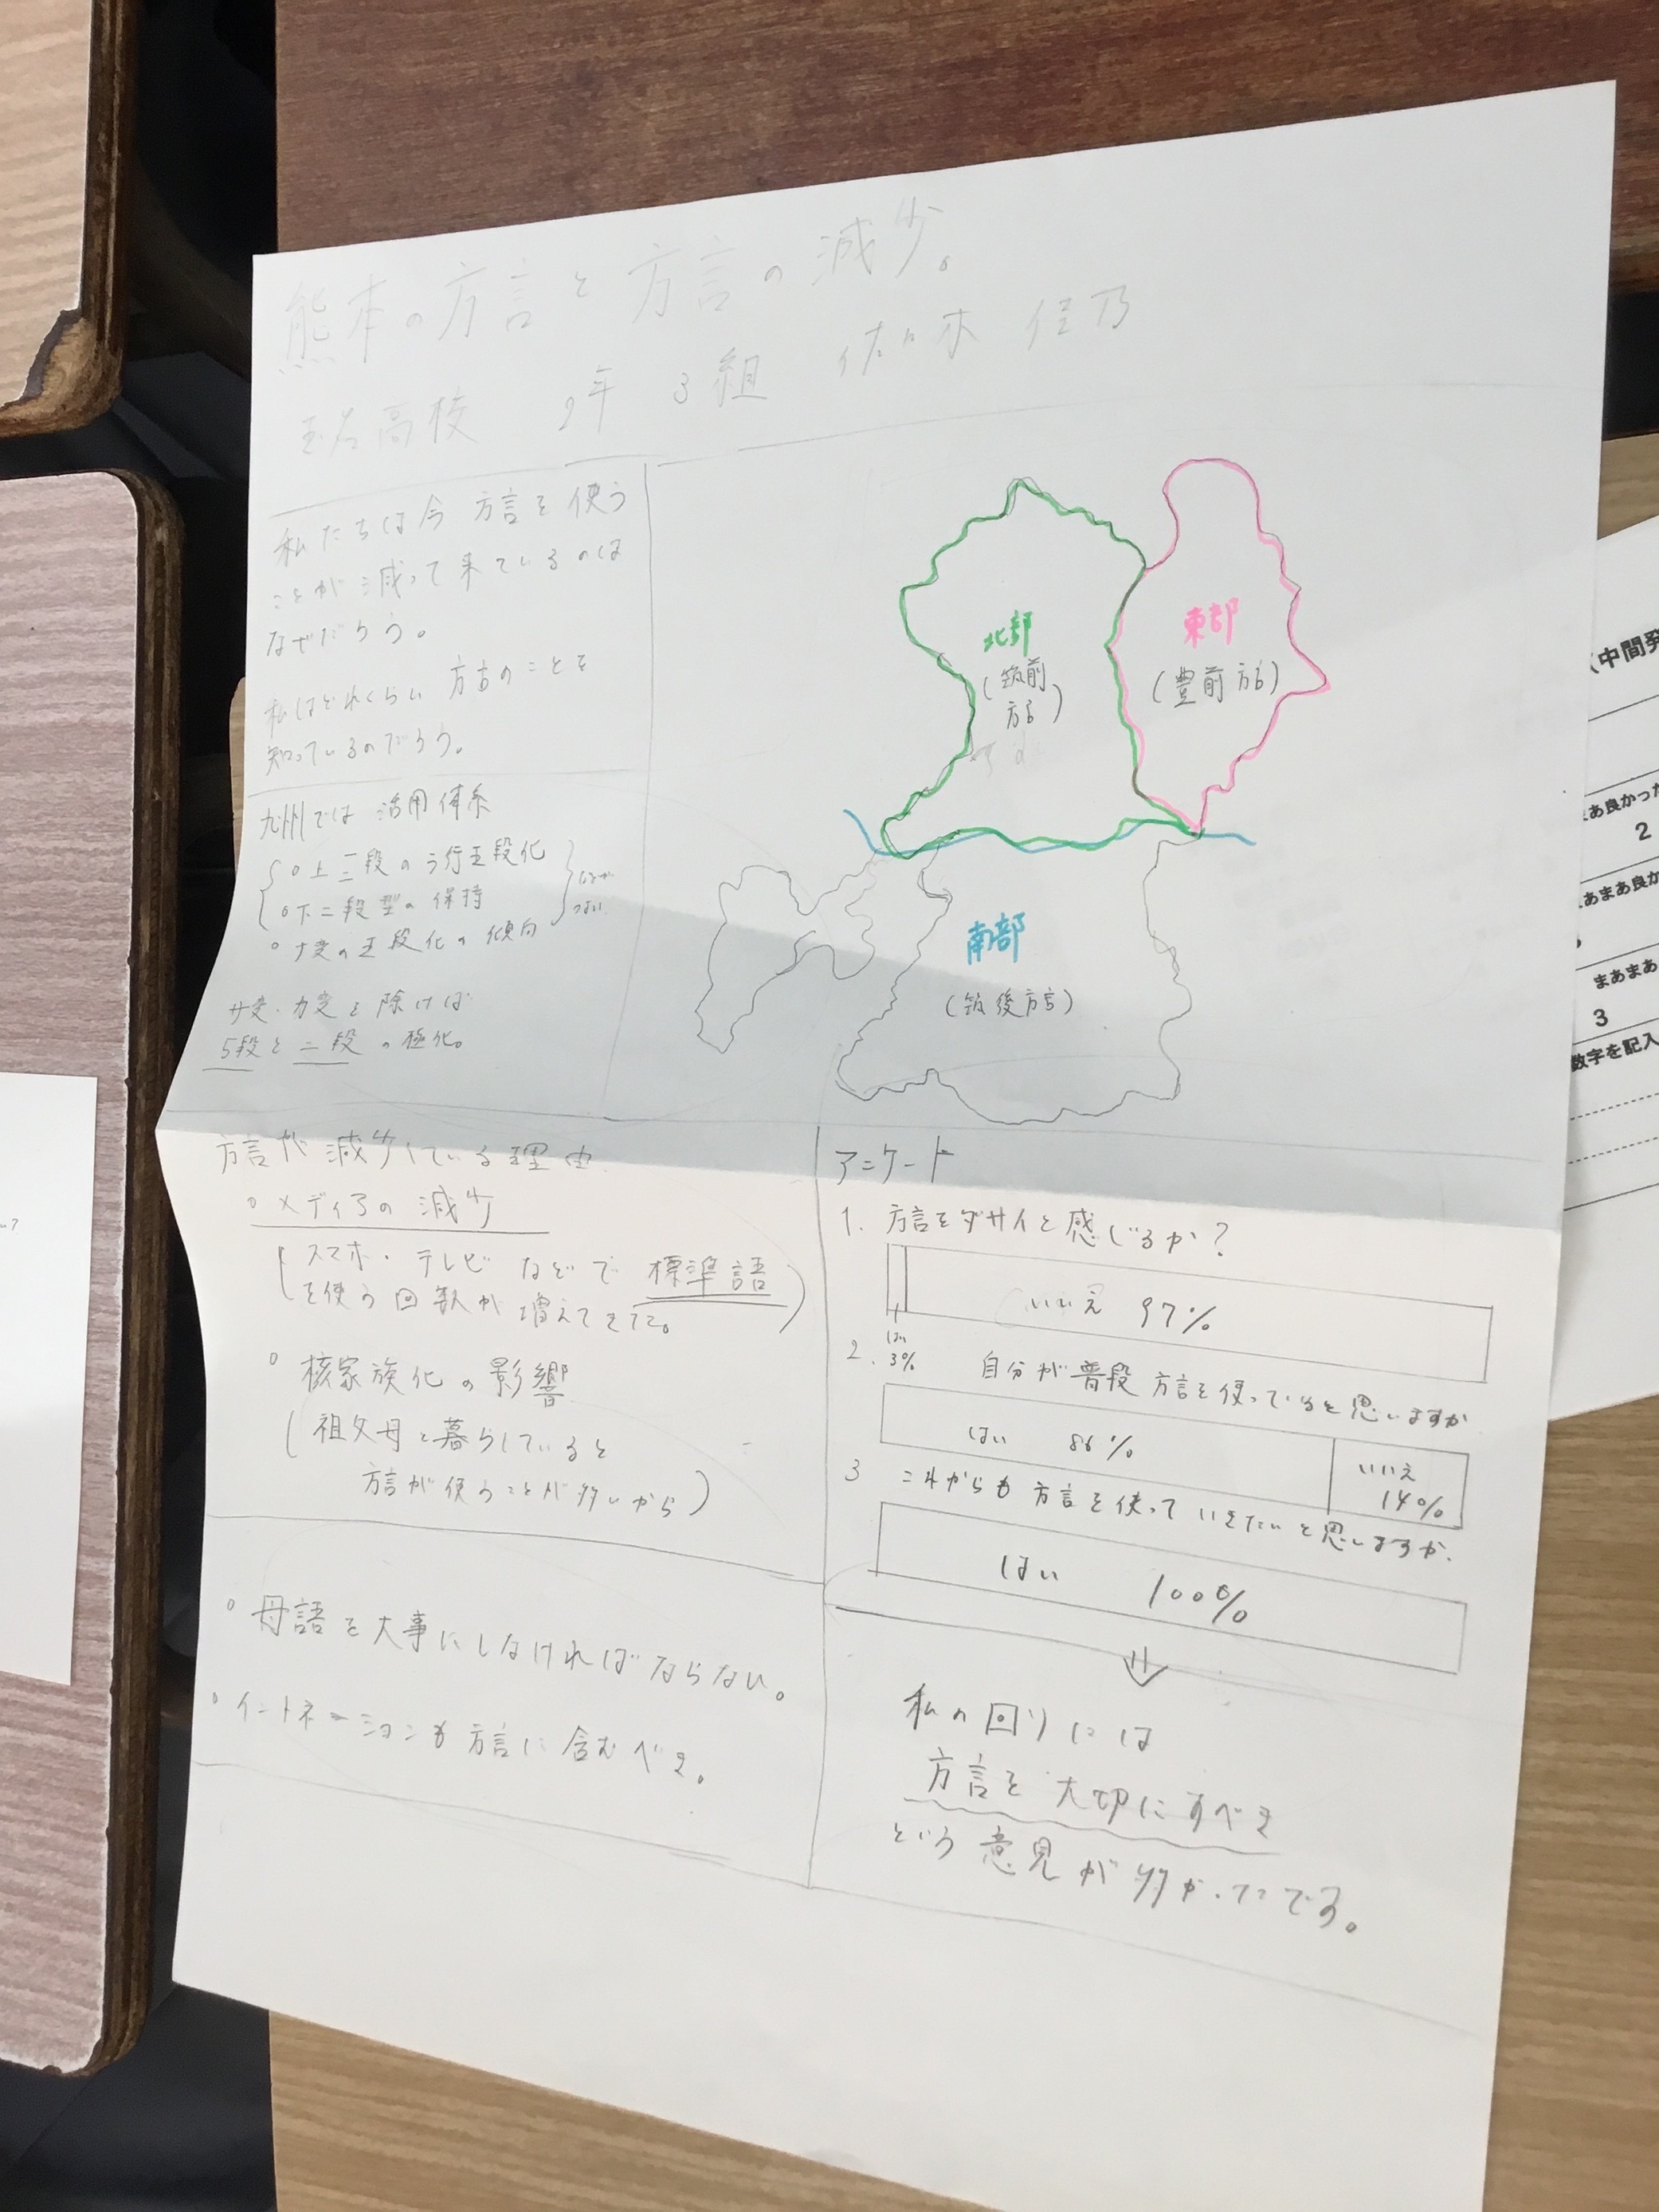 熊本の方言と方言の減少。
玉名高校 2年 3組 佐々木 佳乃
私たちは今 方言を使う
ことが減って来ているのは
なぜだろう。
私はどれくらい方言のことを
知っているのだろう。
九州では 活用体系
○上二段のラ行五段化
○下二段型の保持
○ナ変の五段化の傾向
サ変・カ変を除けば
5段と二段の極化。
北部
(筑前
方言)
東部
(豊前方言)
南部
(筑後方言)
方言が減少している理由
○メディアの減少
(スマホ・テレビなどで標準語
を使う回数が増えてきた。)
○核家族化の影響
(祖父母と暮らしていると
方言が使うことが多いから)
○母語を大事にしなければならない。
○イントネーションも方言に含むべき。
アンケート
1. 方言をダサイと感じるか?
いいえ 97%
はい
3%
2. 自分が普段方言を使っていると思いますか
はい 86%
いいえ
14%
3 これからも方言を使っていきたいと思いますか.
はい 100%
⇓
私の回りには
方言を大切にすべき
という意見が多かったです。
(中間発
まあ良かった
2
あまあ良か
まあまあ
3
数字を記入